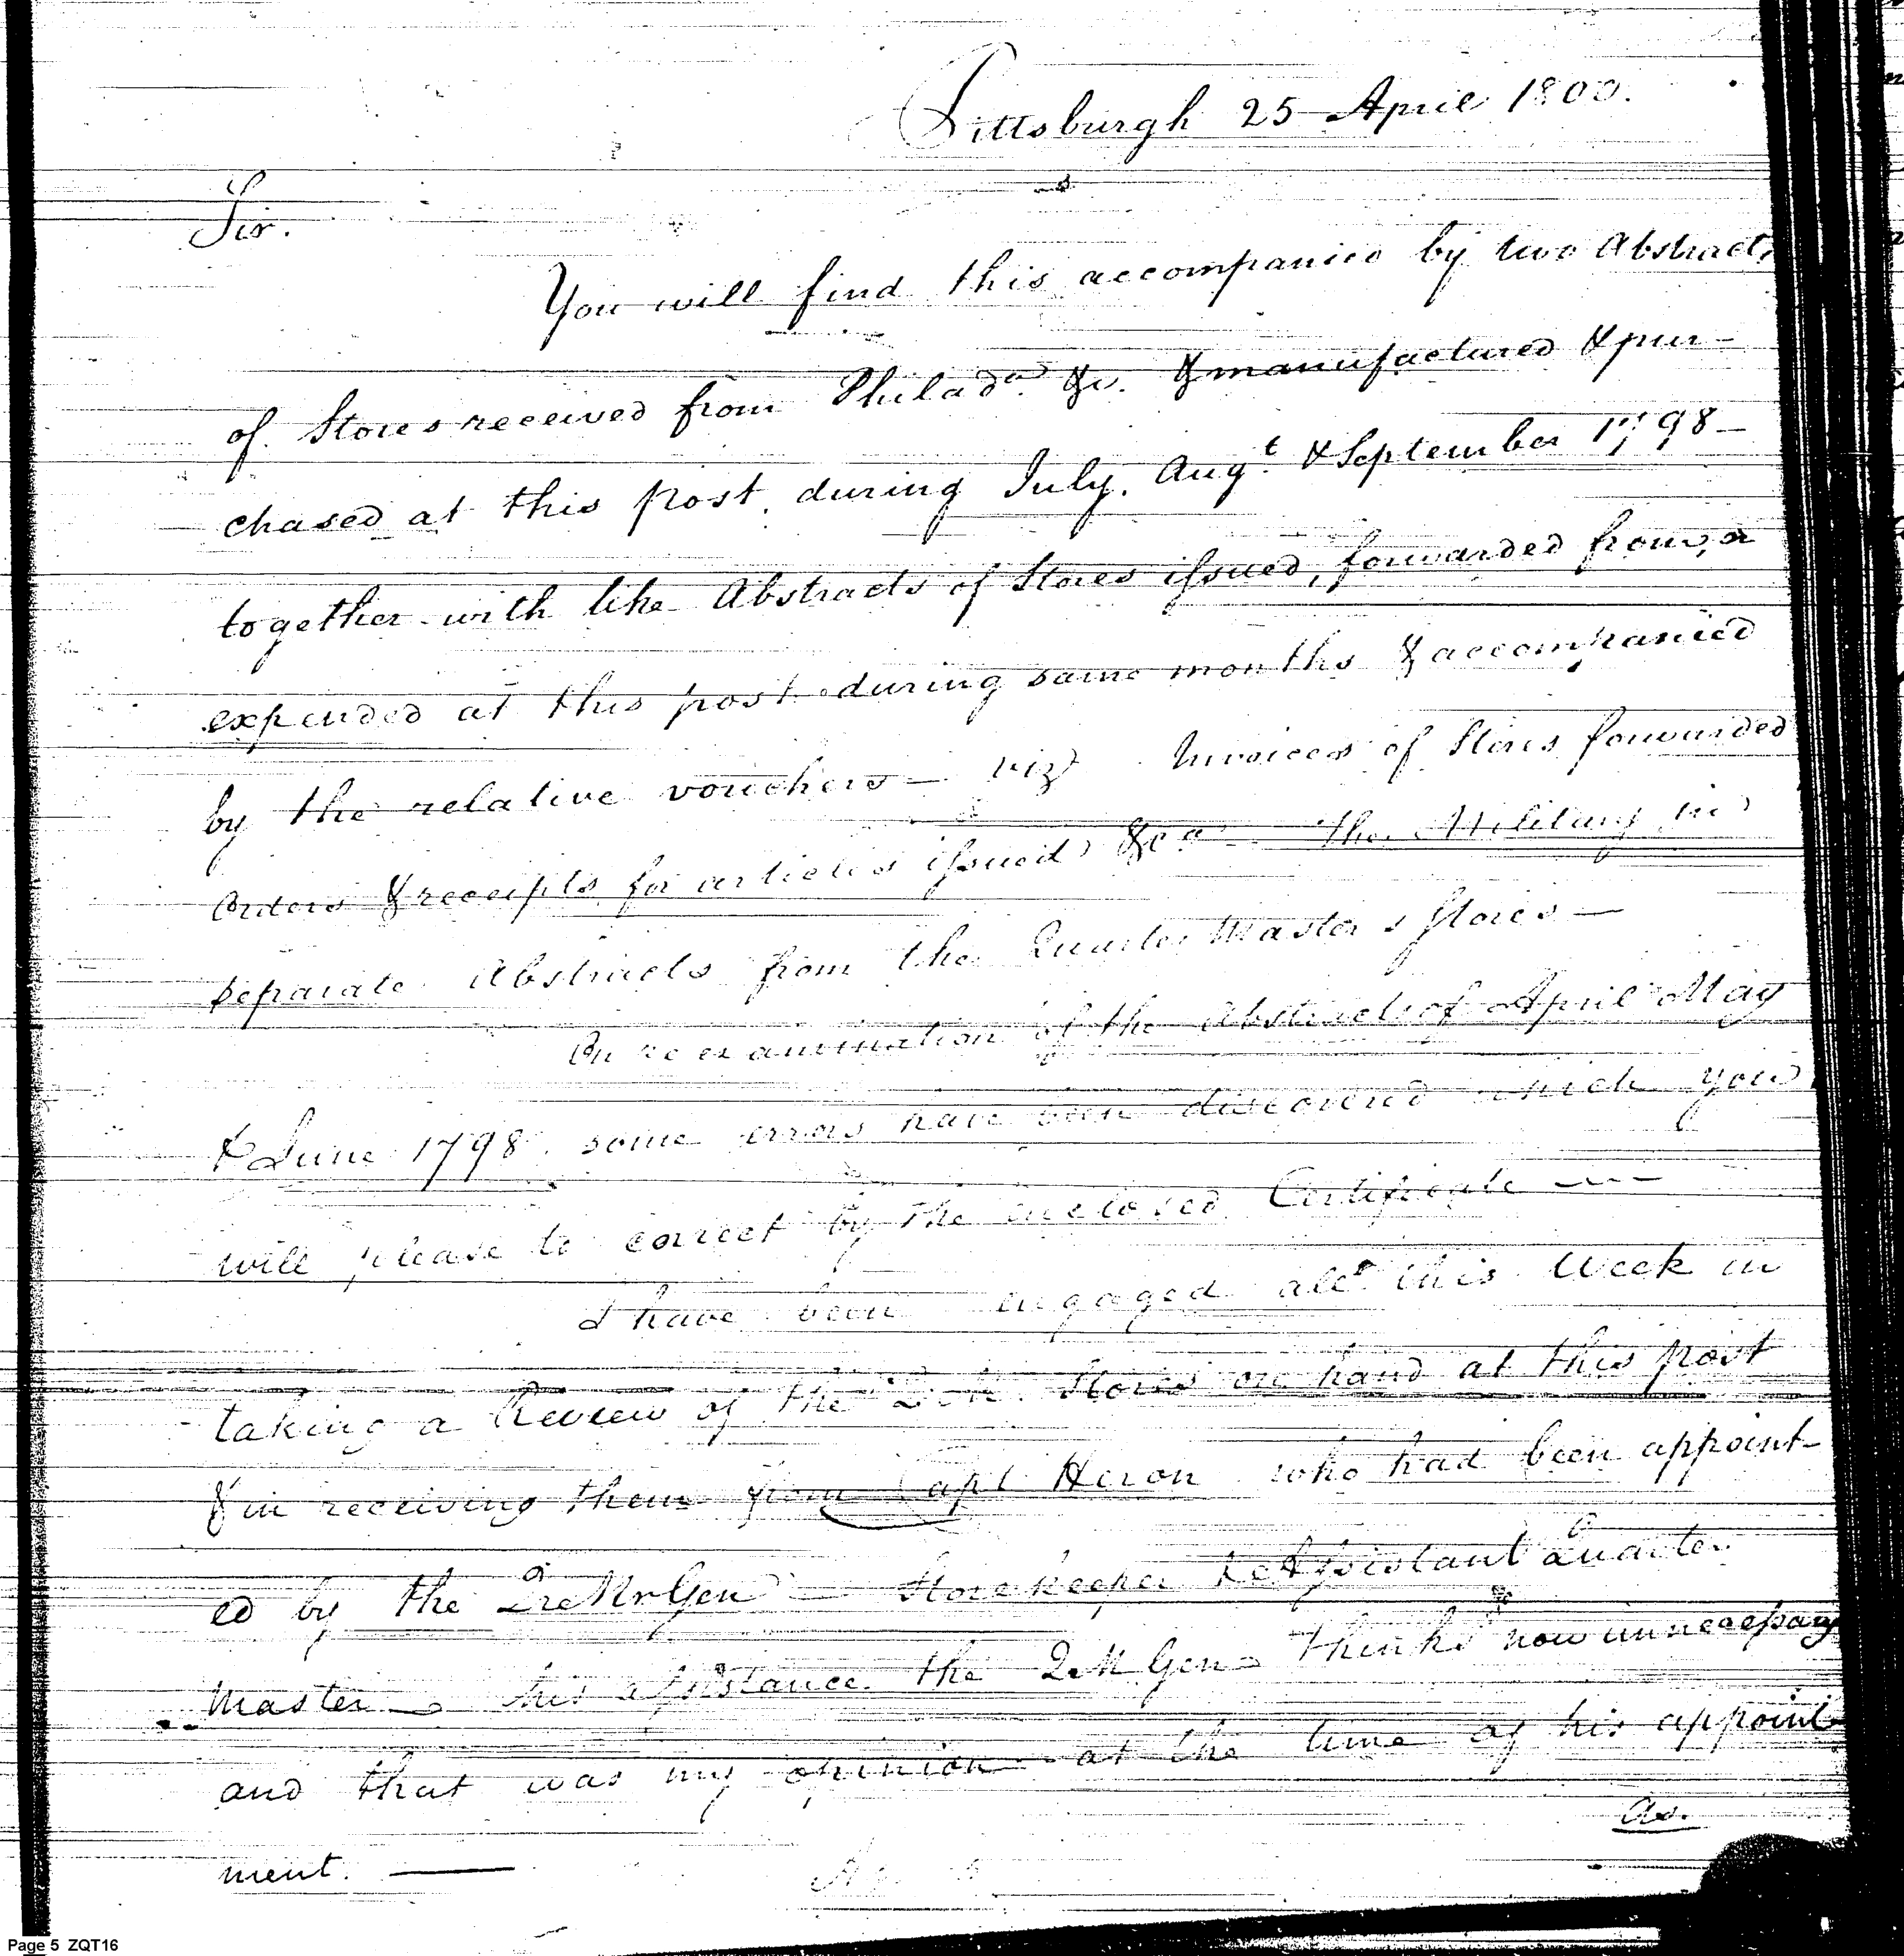 Pittsburgh 25 April 1800.
Sir.
You will find this accompanied by two Abstracts
of Stores received from Philada. &c. & manufactured & pur-
chased at this post during July, Augt. & September 1798 —
together with like Abstracts of Stores issued, forwarded from, or
expended at this post during same months & accompanied
by the relative vouchers — viz Invoices of Stores forwarded
Orders & receipts for articles issued &ca — The Military in
separate Abstracts from the Quarter Masters Stores —
On re examination of the Abstracts of April May
& June 1798. some errors have been discovered which you
will please to correct by the inclosed Certificate —
I have been engaged all this Week in
taking a Review of the Stores on hand at this post
& in receiving them from Capt Heron who had been appoint-
ed by the Qr Mr Gen Storekeeper & Assistant Quarter
Master — his assistance the Q M Gen thinks now unnecessary
and that was my opinion at the time of his appoint
ment. —
as.
Page 5 ZQT16